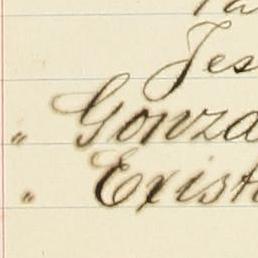 Jes
" Gonza
" Exist